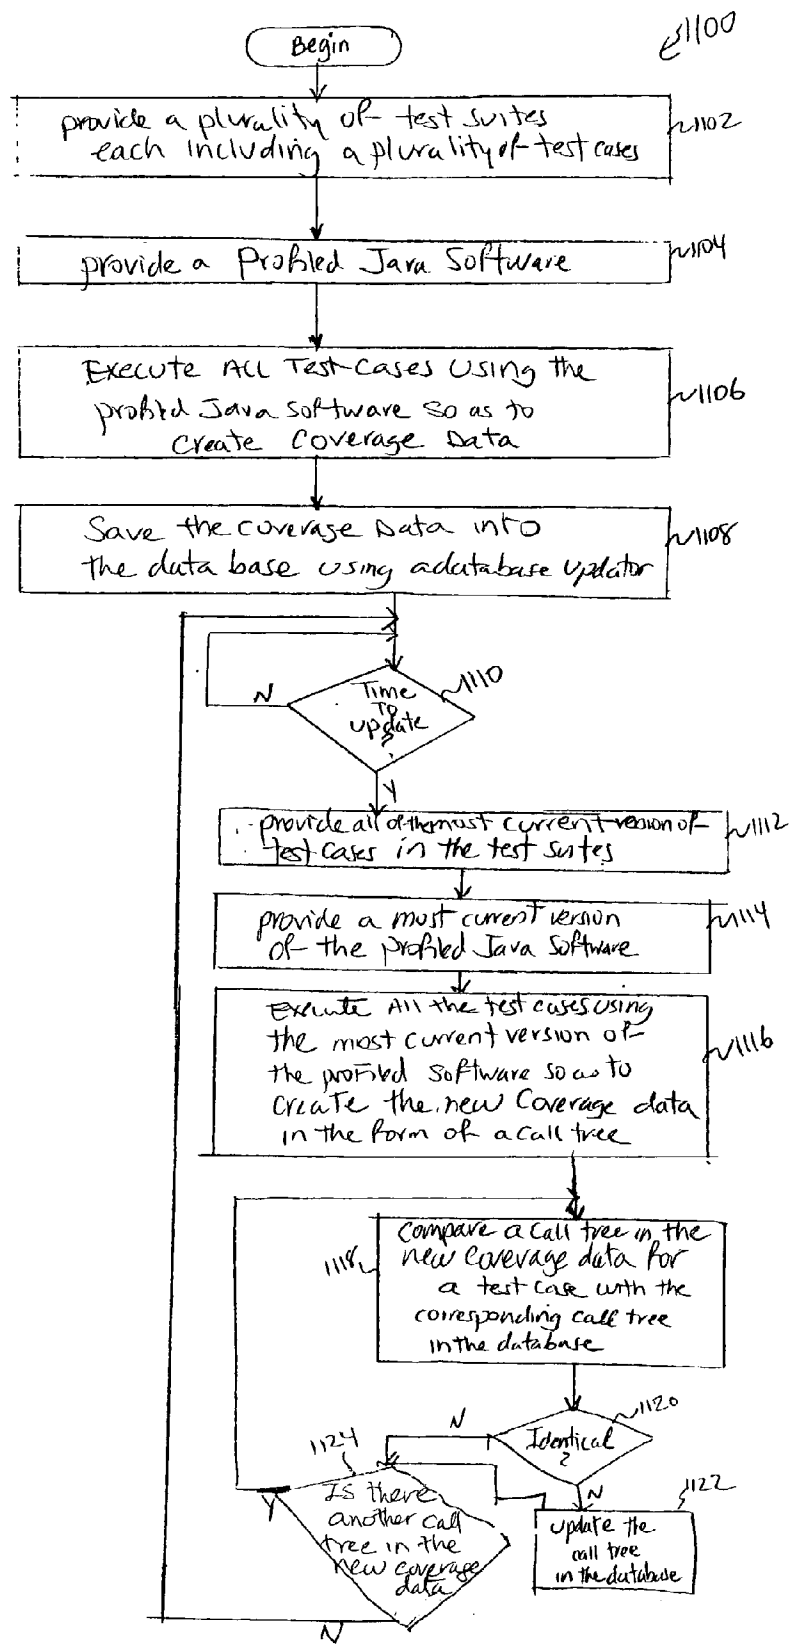 Begin
1100
provide a plurality of test suites
each including a plurality of test cases
1102
provide a Profiled Java Software
1104
Execute All Test Cases Using the
profiled Java Software so as to
create Coverage Data
1106
Save the coverage Data into
the data base using a database updator
1108
N
Time
To
update
?
1110
Y
provide all of the most current version of
test cases in the test suites
1112
provide a most current version
of the profiled Java Software
1114
Execute All the test cases using
the most current version of
the profiled Software so as to
create the new Coverage data
in the form of a call tree
1116
compare a call tree in the
new coverage data for
a test case with the
corresponding call tree
in the database
1118
N
Identical
?
1120
N
1124
Y
Is there
another call
tree in the
new coverage
data
1122
update the
call tree
in the database
N